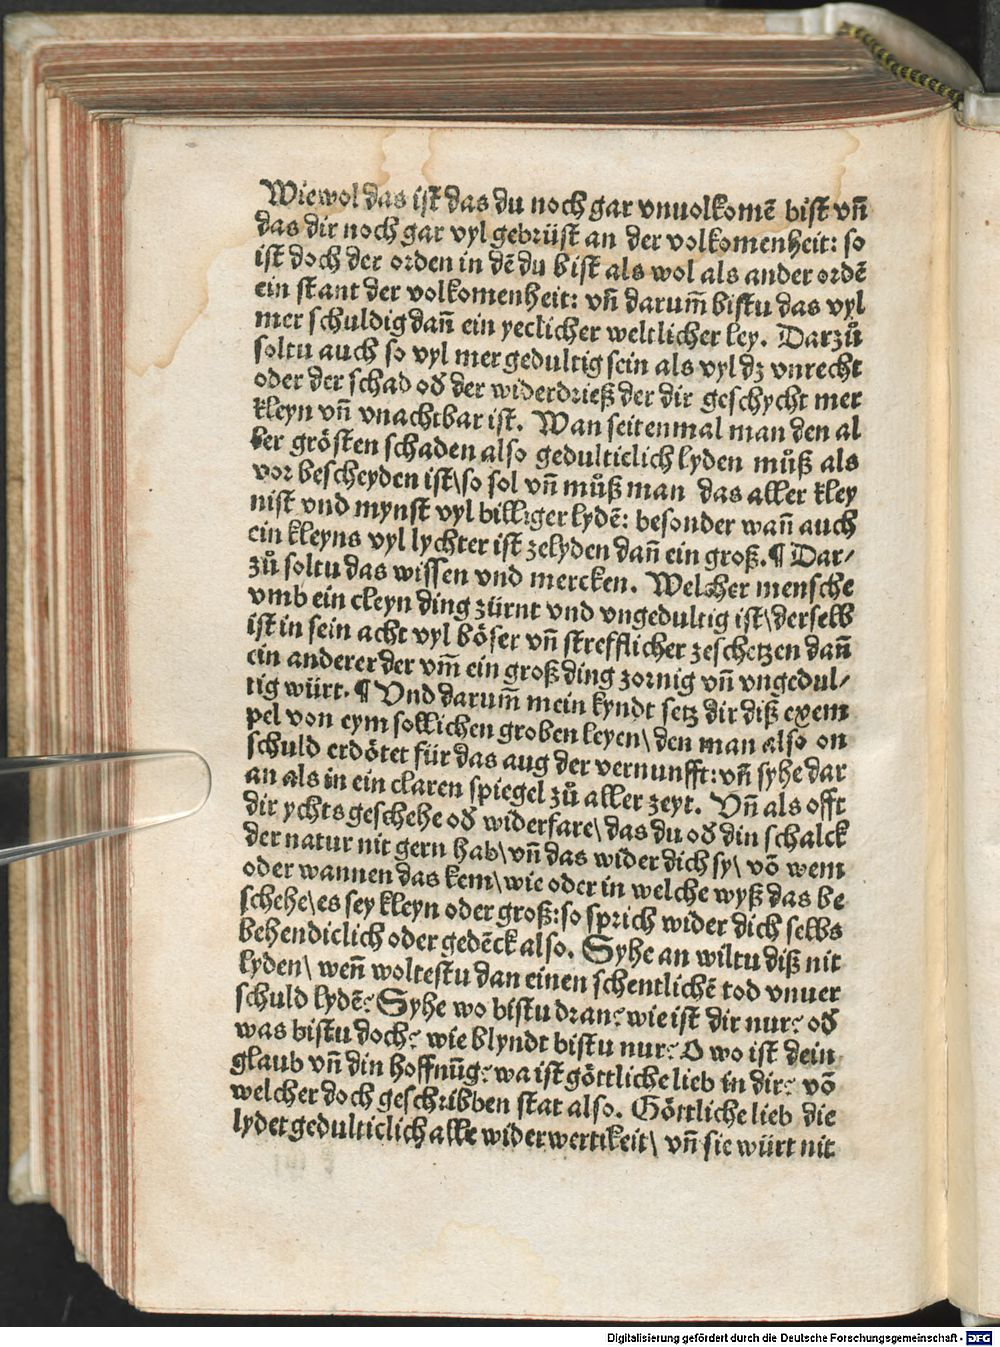 Wiewol das ist das du noch gar vnuolkomē bist vn̄
das dir noch gar vyl gebrüst an der volkomenheit: so
ist doch der orden in dē du bist als wol als ander ordē
ein stant der volkomenheit: vn̄ darum̄ bistu das vyl
mer schuldig dan̄ ein yeclicher weltlicher ley. Darzů
soltu auch so vyl mer gedultig sein als vyl dz vnrecht
oder der schad od der widerdrieß der dir geschycht mer
kleyn vn̄ vnachtbar ist. Wan seitenmal man den al
ler grösten schaden also gedulticlich lyden můß als
vor bescheyden ist\ so sol vn̄ můß man das aller kley
nist vnd mynst vyl billiger lydē: besonder wan̄ auch
ein kleyns vyl lychter ist zelyden dan̄ ein groß. ¶ Dar⸗
zů soltu das wissen vnd mercken. Welcher mensche
vmb ein cleyn ding zürnt vnd vngedultig ist\ derselb
ist in sein acht vyl böser vn̄ strefflicher zeschetzen dan̄
ein anderer der vm̄ ein groß ding zornig vn̄ vngedul⸗
tig würt. ¶ Vnd darum̄ mein kyndt setz dir diß exem
pel von eym sollichen groben leyen\ den man also on
schuld erdötet für das aug der vernunfft: vn̄ syhe dar
an als in ein claren spiegel zů aller zeyt. Vn̄ als offt
dir ychts geschehe od widerfare\ das du od din schalck
der natur nit gern hab\ vn̄ das wider dich sy\ vō wem
oder wannen das kem\ wie oder in welche wyß das be
schehe\ es sey kleyn oder groß: so sprich wider dich selbs
behendiclich oder gedēck also. Syhe an wiltu diß nit
lyden\ wen̄ woltestu dan einen schentlichē tod vnuer
schuld lydē? Syhe wo bistu dran? wie ist dir nur? od
was bistu doch? wie blyndt bistu nur? O wo ist dein
glaub vn̄ din hoffnūg? wa ist göttliche lieb in dir? vō
welcher doch geschribben stat also. Göttliche lieb die
lydet gedulticlich alle widerwertikeit\ vn̄ sie würt nit
Digitalisierung gefördert durch die Deutsche Forschungsgemeinschaft - DFG